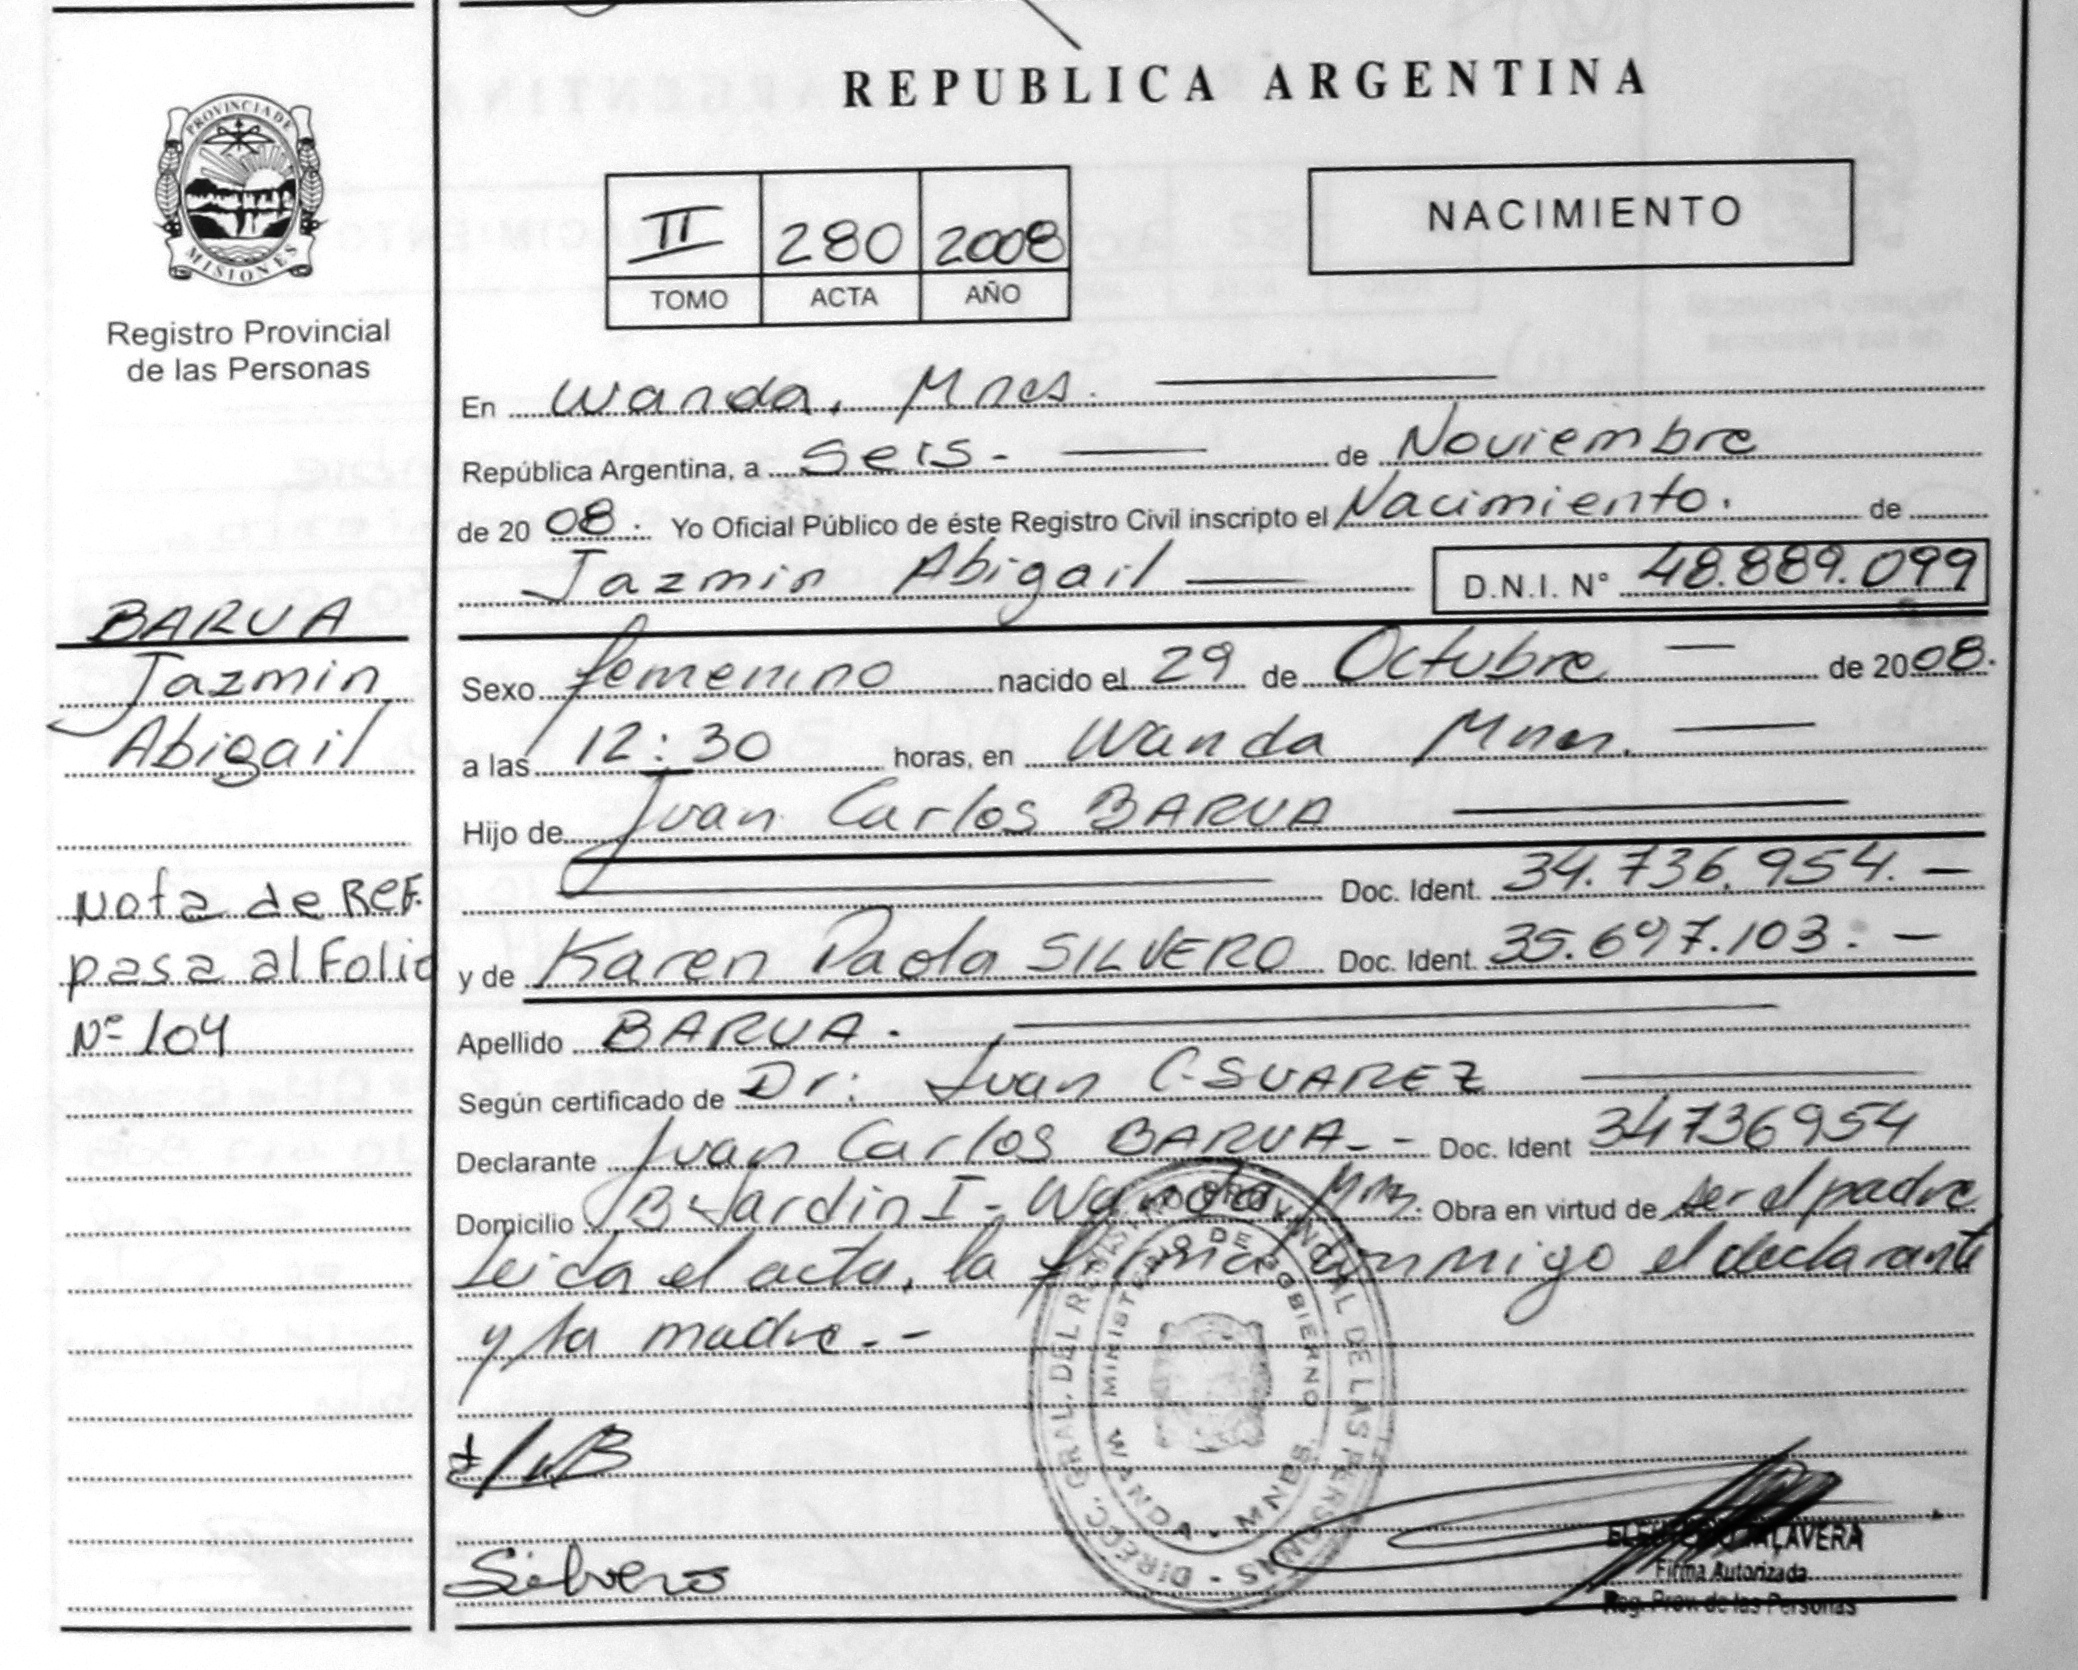 REPUBLICA ARGENTINA
PROVINCIA DE
MISIONES
Registro Provincial
de las Personas
II 280 2008
TOMO ACTA AÑO
NACIMIENTO
En Wanda, Mnes.
República Argentina, a Seis.- de Noviembre
de 2008. Yo Oficial Público de éste Registro Civil inscripto el Nacimiento. de
Jazmin Abigail D.N.I. N° 48.889.099
BARUA
Jazmin
Abigail
Sexo femenino nacido el 29 de Octubre de 2008.
a las 12:30 horas, en Wanda Mnes.
Hijo de Juan Carlos BARUA
Doc. Ident. 34.736.954.-
y de Karen Paola SILVERO Doc. Ident. 35.697.103.-
Nota de REF.
pasa al Folio
Nº 104
Apellido BARUA.
Según certificado de Dr: Juan C. SUAREZ
Declarante Juan Carlos BARUA.- Doc. Ident 34736954
Domicilio B Jardin I - Wanda Mnes. Obra en virtud de ser el padre
Leida el acta, la firma conmigo el declarante
y la madre.-
DIREC. GRAL. DEL REGISTRO PROVINCIAL DE LAS PERSONAS
MINISTERIO DE GOBIERNO
WANDA - MNES.
Silvero
TALAVERA
Firma Autorizada
Reg. Prov. de las Personas